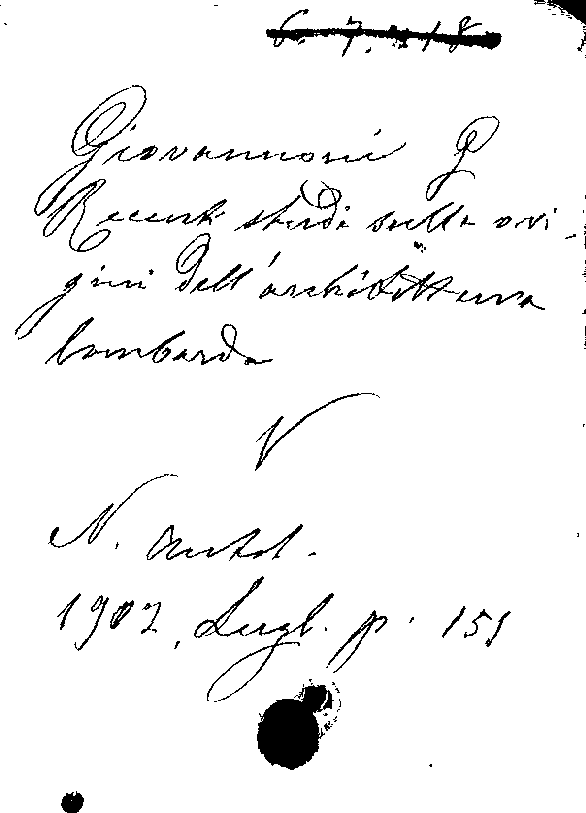 6. 7. 18
Giovannoni G
Recenti studi sulle ori-
gini dell'architettura
lombarda
V
N. Antol.
1902, Lugl. p. 151